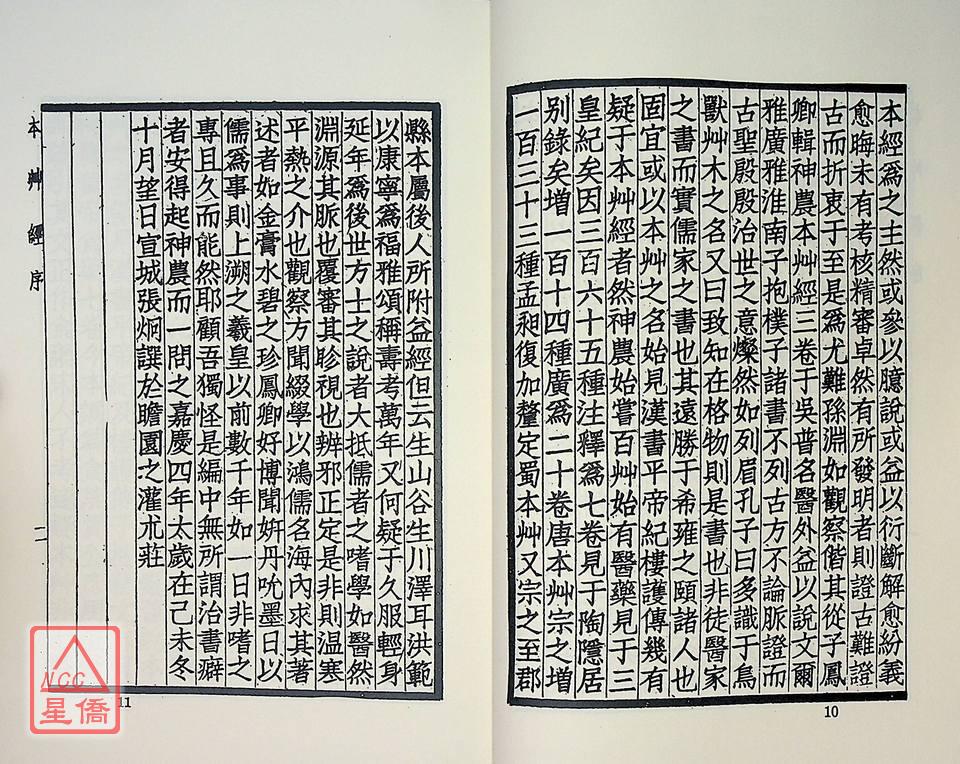 本經爲之主然或參以臆說或益以衍斷解愈紛義
愈晦未有考核精審卓然有所發明者則證古難證
古而折衷于至是爲尤難孫淵如觀察偕其從子鳳
卿輯神農本艸經三卷于吳普名醫外益以說文爾
雅廣雅淮南子抱樸子諸書不列古方不論脈證而
古聖殷殷治世之意燦然如列眉孔子曰多識于鳥
獸艸木之名又曰致知在格物則是書也非徒醫家
之書而實儒家之書也其遠勝于希雍之頤諸人也
固宜或以本艸之名始見漢書平帝紀樓護傳幾有
疑于本艸經者然神農始嘗百艸始有醫藥見于三
皇紀矣因三百六十五種注釋爲七卷見于陶隱居
別錄矣增一百十四種廣爲二十卷唐本艸宗之增
一百三十三種孟昶復加釐定蜀本艸又宗之至郡
10
縣本屬後人所附益經但云生山谷生川澤耳洪範
以康寧爲福雅頌稱壽考萬年又何疑于久服輕身
延年爲後世方士之說者大抵儒者之嗜學如醫然
淵源其脈也覆審其眕視也辨邪正定是非則溫寒
平熱之介也觀察方聞綴學以鴻儒名海內求其著
述者如金膏水碧之珍鳳卿好博聞姸丹吮墨日以
儒爲事則上溯之羲皇以前數千年如一日非嗜之
專且久而能然耶顧吾獨怪是編中無所謂治書癖
者安得起神農而一問之嘉慶四年太歲在己未冬
十月望日宣城張炯譔於瞻園之灌朮莊
本艸經序
二
11
NCC
星僑